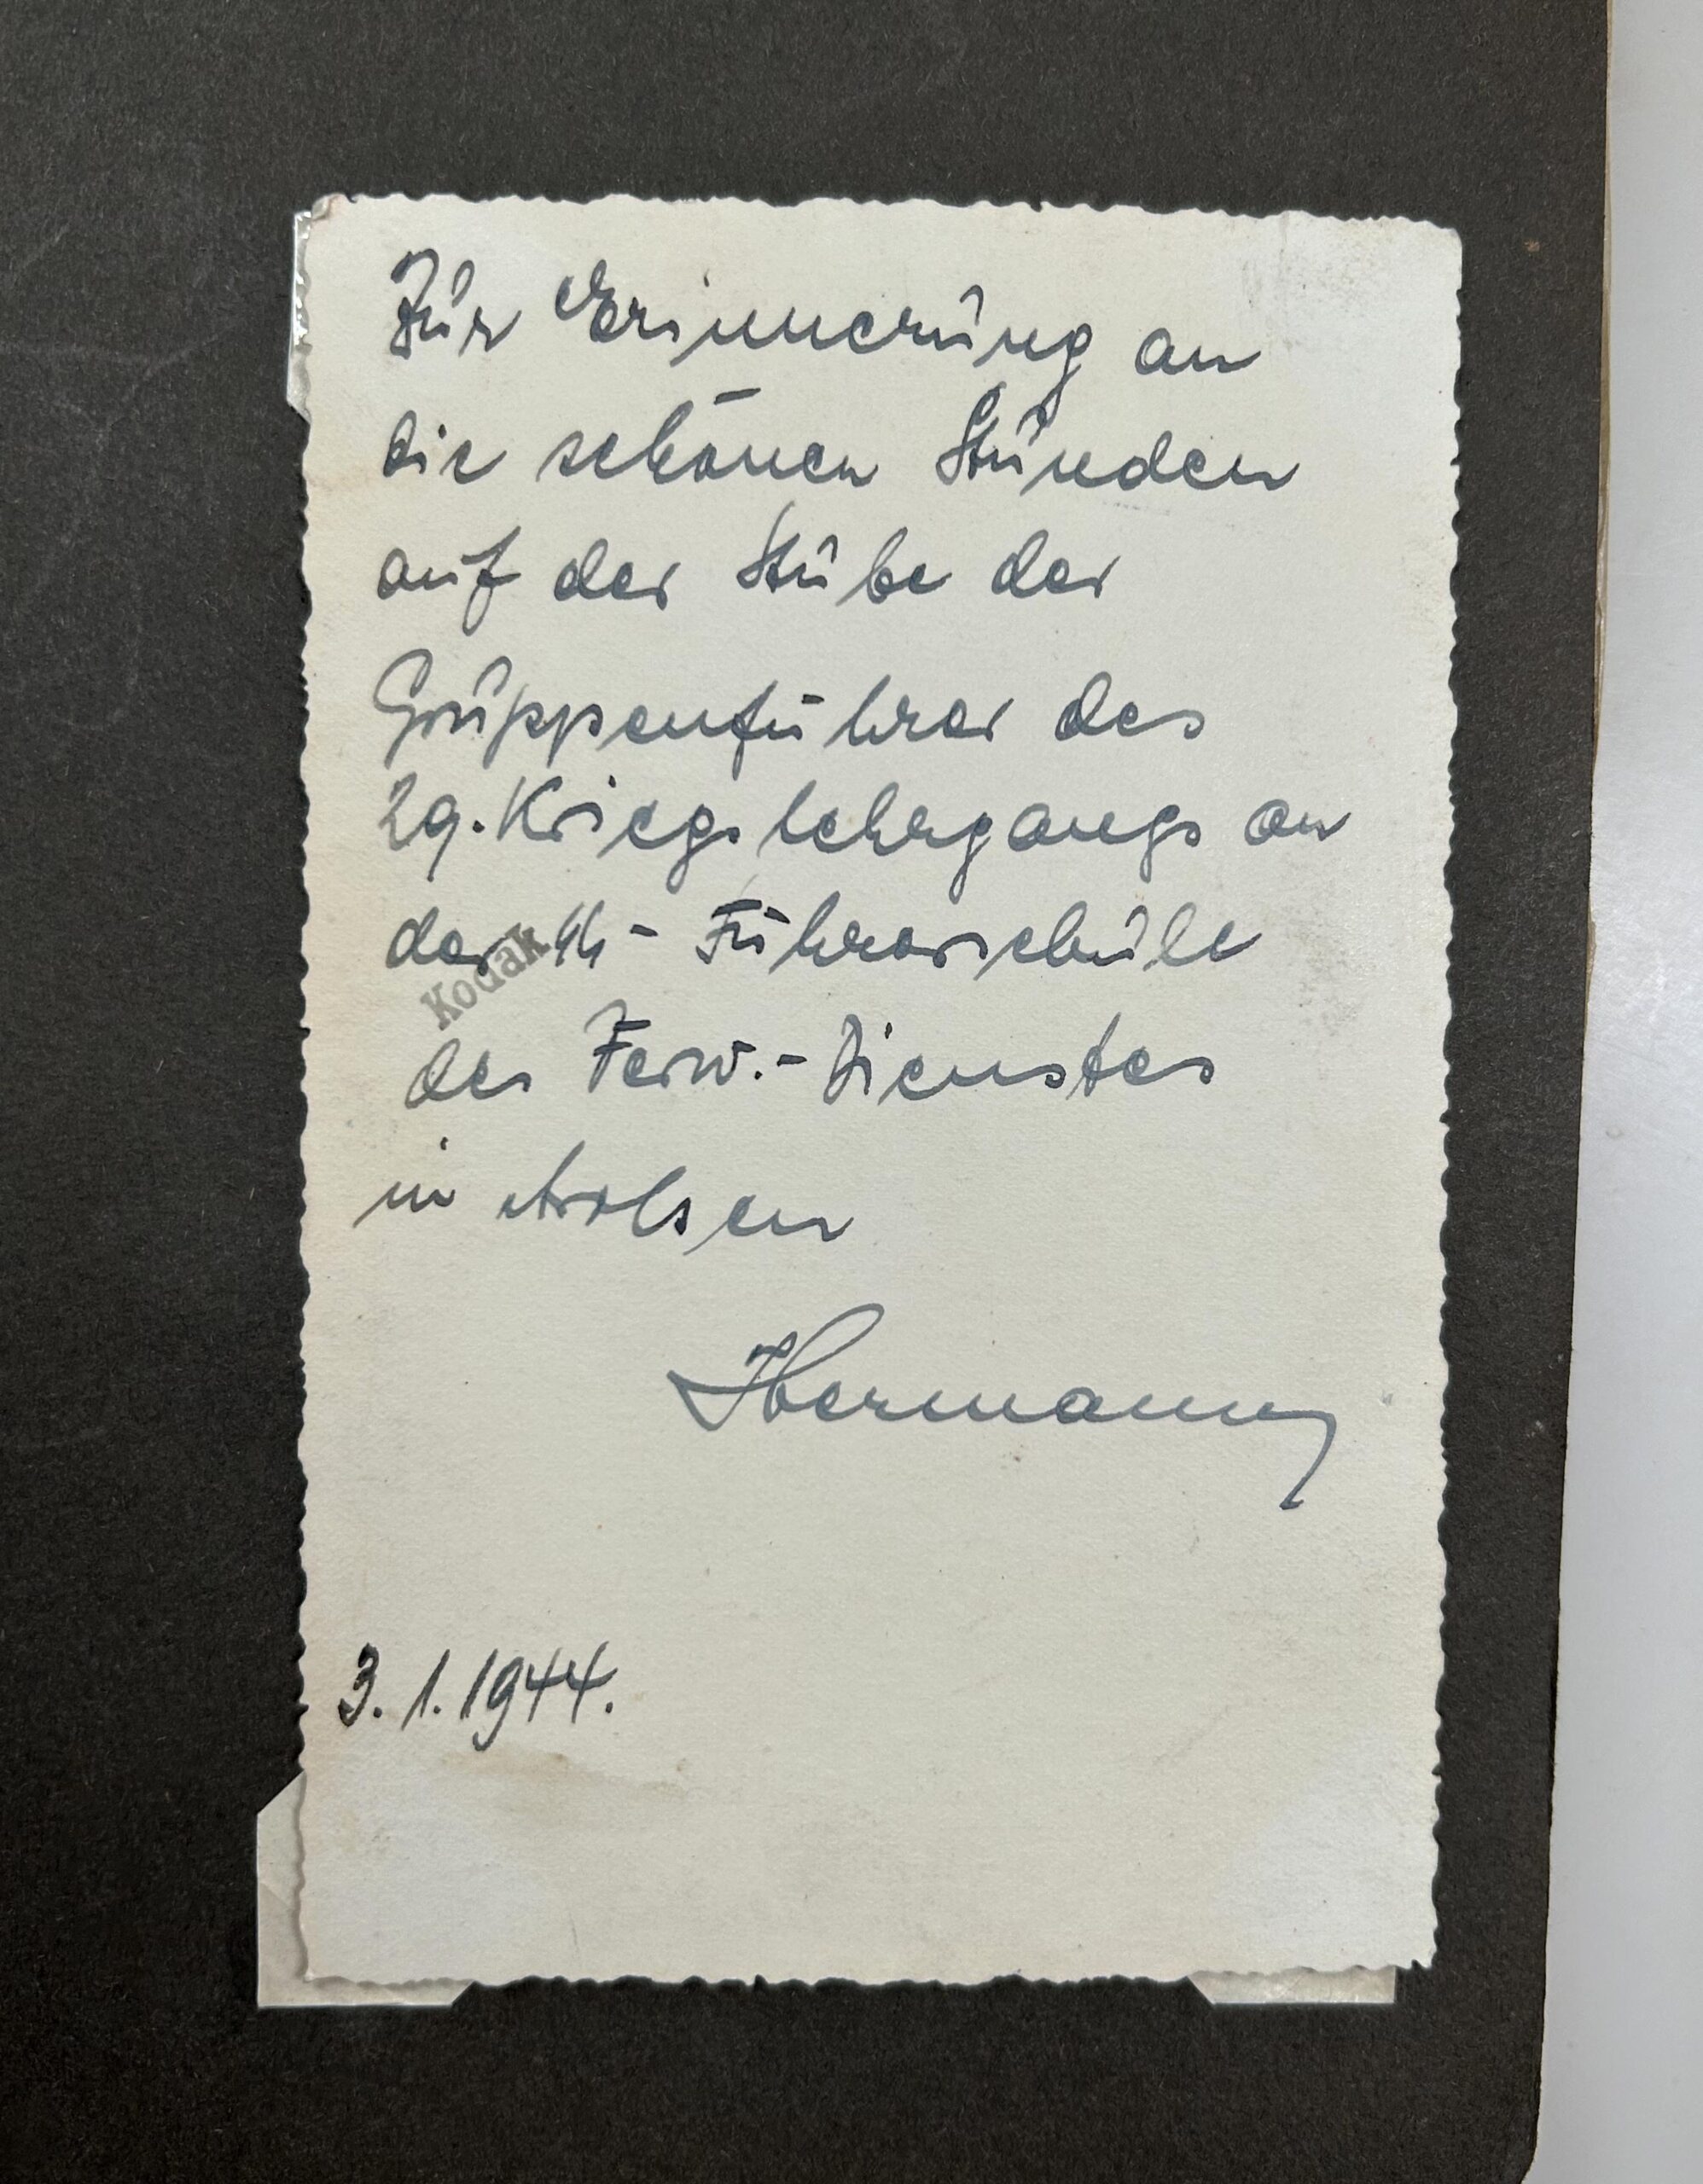 Zur Erinnerung an
die schönen Stunden
auf der Stube der
Gruppenführer des
29. Kriegslehrgangs an
der SS-Führerschule
Kodak
des Verw.-Dienstes
in Arolsen
Hermann
3.1.1944.